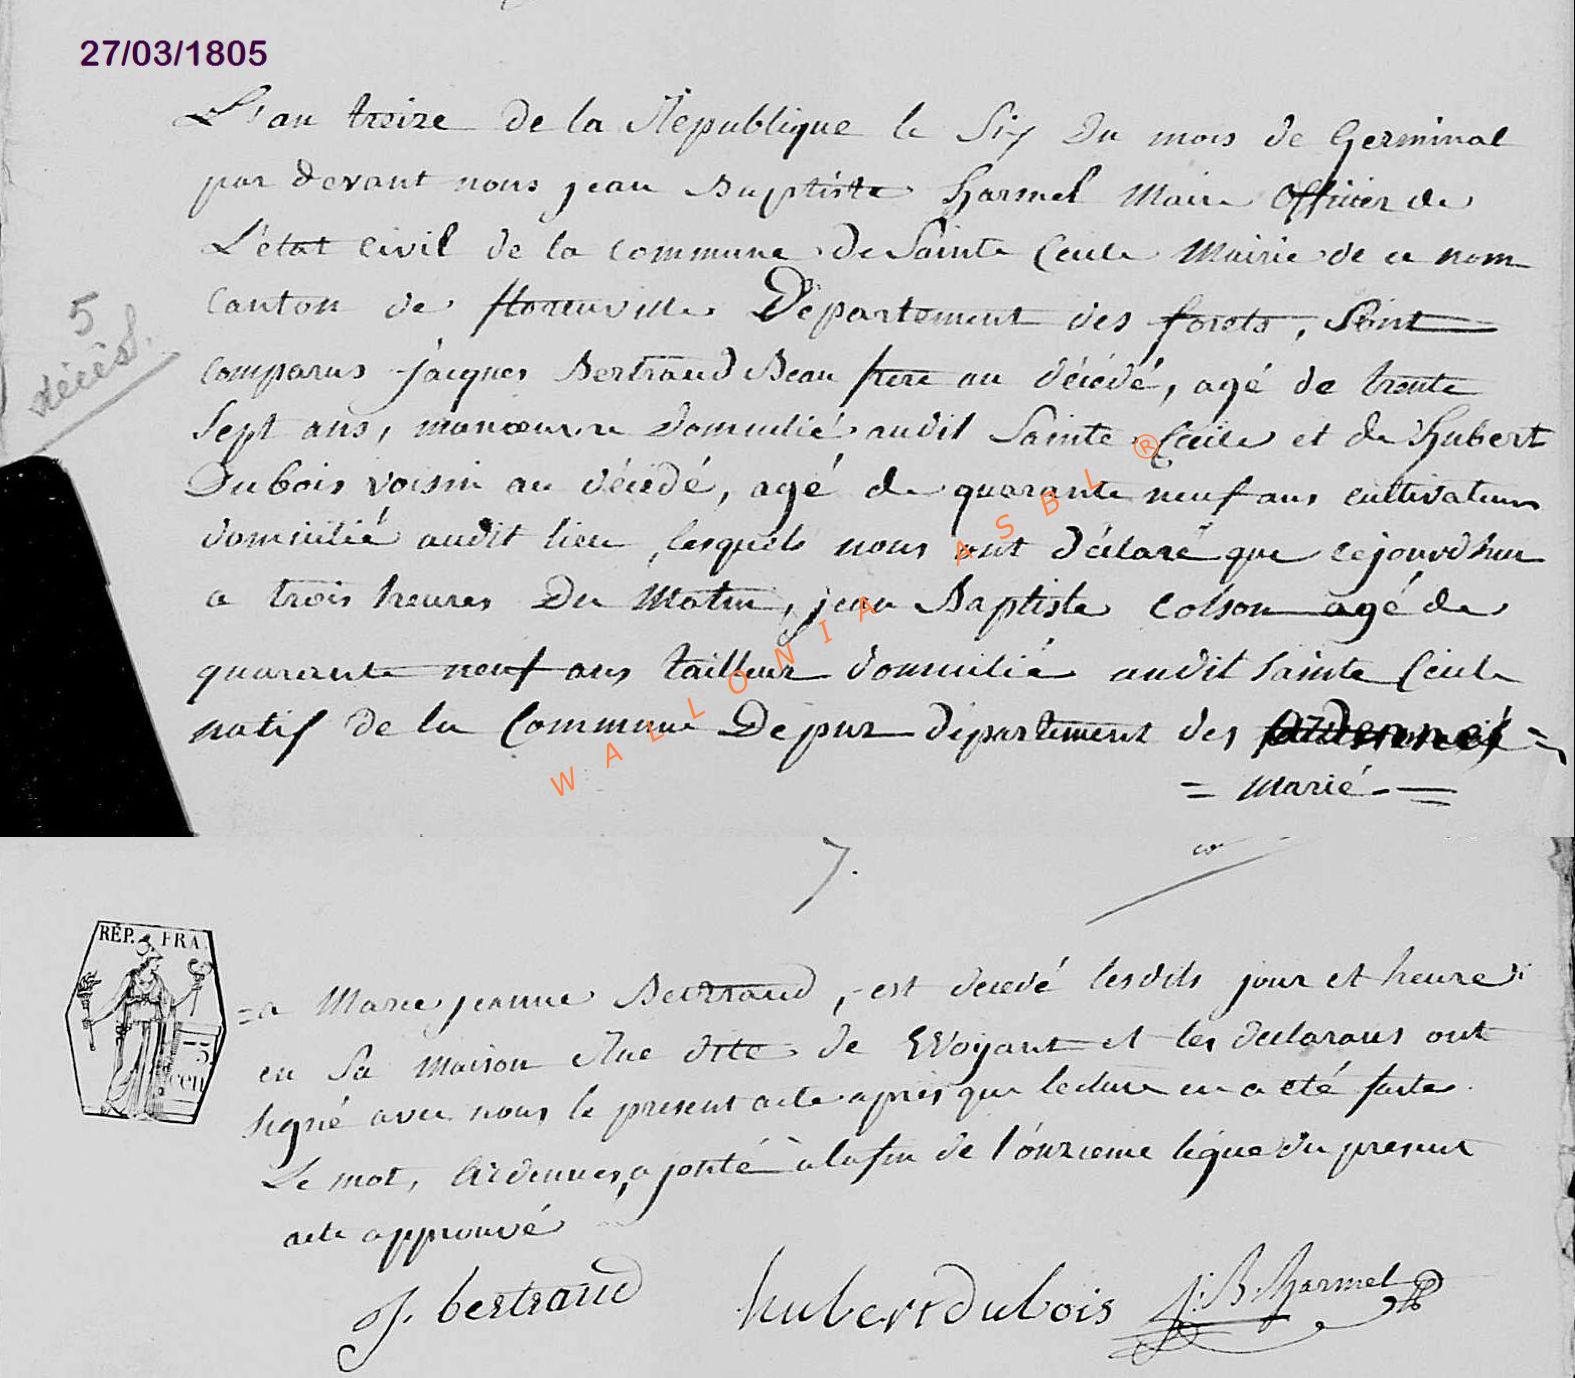 27/03/1805
L'an treize de la Republique le Six Du mois de Germinal
par devant nous jean Baptiste Harmel Maire Officier de
L'état civil de la commune de Sainte Cecile Mairie de ce nom
Canton de florenville Département des forets, Sont
comparus jacques Bertrand Beau frere au décédé, agé de trente
Sept ans, manoeuvre Domicilié audit Sainte Cécile et de hubert
Dubois voisin au décédé, agé de quarante neuf ans cultivateur
domicilié audit lieu, lesquels nous ont déclaré que cejourdhui
a trois heures Du Matin, jean Baptiste Colson agé de
quarante neuf ans tailleur domicilié audit Sainte Cecile
natif de la Commune De pur département des Ardennes =
= Marié - =
5
décès.
WALLONIA ASBL ®
7.
RÉP. FRA.
75
cen
= a Marie jeanne Bertrand, est decedé lesdits jour et heure
en Sa Maison Rue dite de et les declarans ont
signé avec nous le present acte apres que lecture en a eté faite
Le mot, Ardennes, ajouté à la fin de l'onzieme ligne du present
acte approuvé
J. bertrand hubert dubois J. B. Harmel